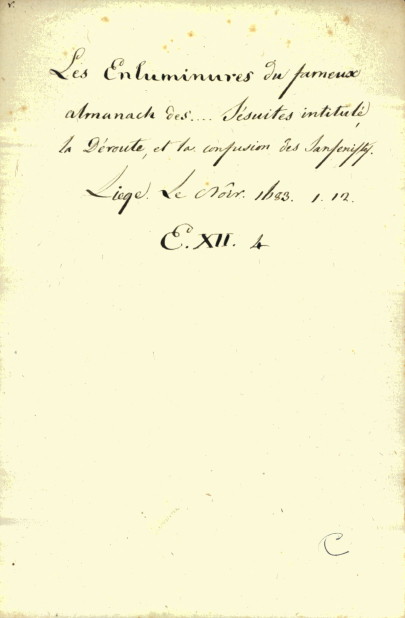 Les Enluminures du fameux
almanach des.... Jésuites intitulé,
la Déroute, et la confusion des Jansenistes.
Liege. Le Noir. 1683. 1. 12.
E. XII. 4
C